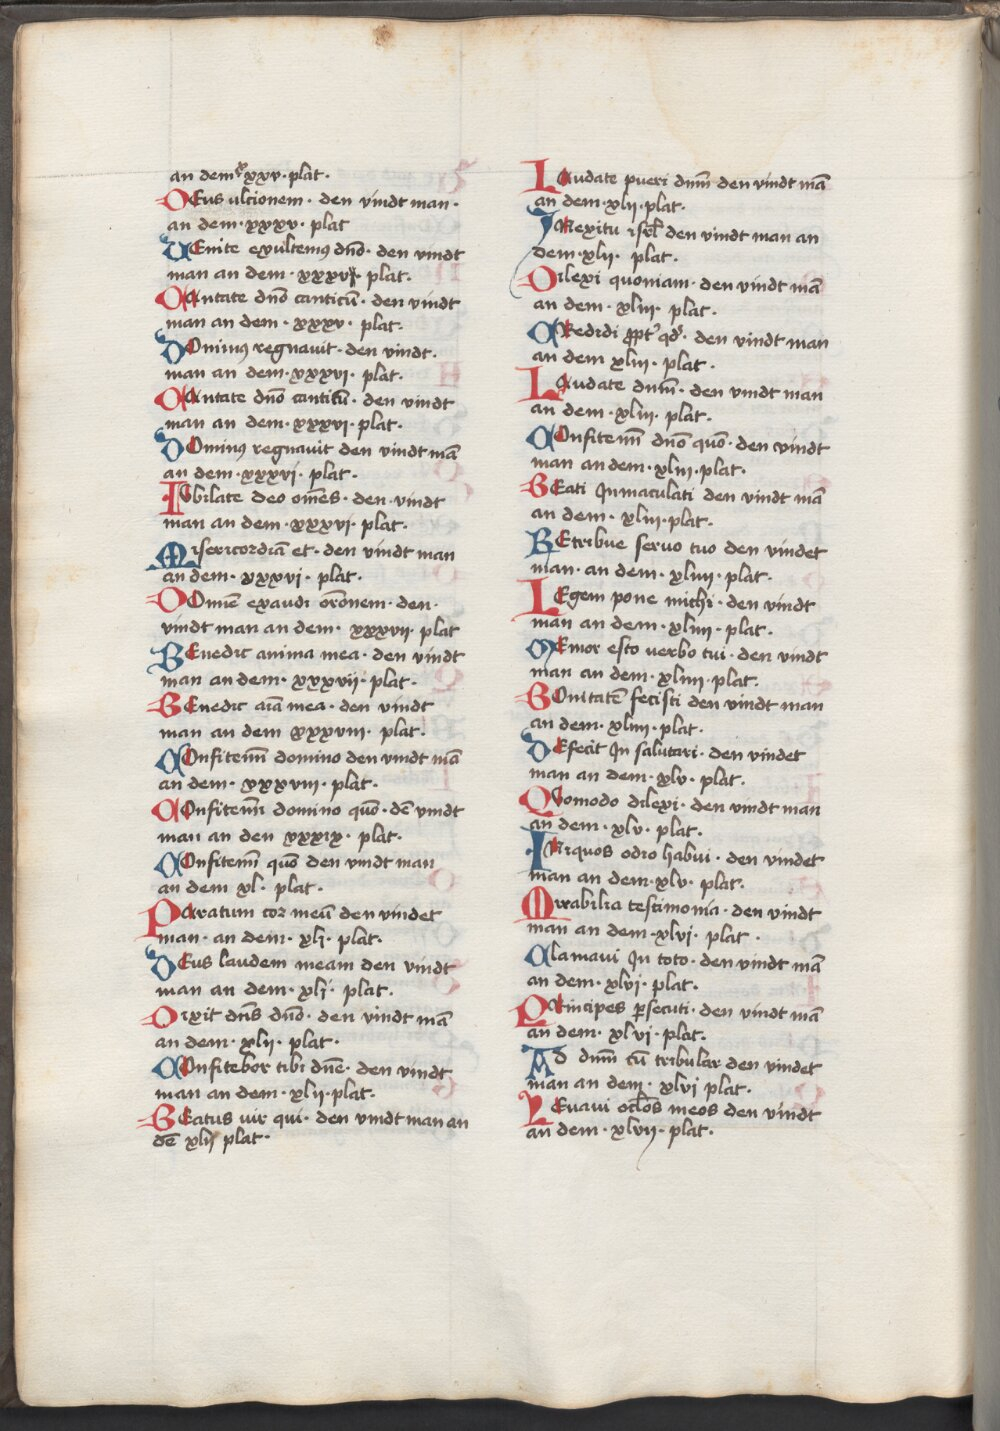 an dem xxxv · plat ·
DEus ulcionem · den vindt man ·
an dem · xxxv · plat
VEnite exultemus dnō · den vindt
man an dem · xxxvj · plat ·
CAntate dnō canticū · den vindt
man an dem · xxxv · plat ·
DOminus regnauit · den vindt ·
man an dem · xxxvi · plat ·
CAntate dnō canticū · den vindt
man an dem · xxxvi · plat ·
DOminus regnauit den vindt mā
an dem · xxxvi · plat ·
IVbilate deo om̄es · den · vindt
man an dem · xxxvi · plat ·
Misericordiā et · den vindt man
an dem · xxxvi · plat ·
DOmīe exaudi orōnem · den ·
vindt man an dem · xxxvij · plat
BEnedic anima mea · den vindt
man an dem · xxxvii · plat ·
BEnedic aīa mea · den vindt
man an dem xxxviii · plat ·
COnfitemī domino den vindt mā
an dem · xxxviii · plat ·
COnfitemī domino quō · dē vindt
man an den xxxix · plat ·
COnfitemī quō den vindt man
an dem xl · plat ·
PAratum cor meū den vindet
man · an dem · xlj · plat ·
DEus laudem meam den vindt
man an dem · xlj · plat ·
Dixit dn̄s dnō · den vindt mā
an dem · xlij · plat ·
COnfitebor tibi dnē · den vindt
man an dem · xlij · plat ·
BEatus uir qui · den vindt man an
dē xlij plat ·
LAudate pueri dnm̄ den vindt mā
an dem · xlij · plat ·
IN exitu isrl̄ den vindt man an
dem · xlij · plat ·
Dilexi quoniam · den vindt mā
an dem · xliij · plat ·
CRedidi ꝓpt' qd' · den vindt man
an dem xliij · plat ·
LAudate dnm̄ · den vindt man
an dem · xliij · plat ·
COnfitemī dnō quō · den vindt
man an dem · xliij · plat ·
BEati Jnmaculati den vindt mā
an dem · xliij · plat ·
REtribue seruo tuo den vindet
man · an dem · xliiij · plat ·
LEgem pone michi · den vindt
man an dem · xliiij · plat ·
MEmor esto uerbo tui · den vindt
man an dem · xliiij · plat ·
BOnitatē fecisti den vindt man
an dem · xliiij · plat ·
DEfecit Jn salutari · den vindet
man an dem · xlv · plat ·
QVomodo dilexi · den vindt man
an dem · xlv · plat ·
INiquos odio habui · den vindet
man an dem · xlv · plat ·
Mirabilia testimonia · den vindt
man an dem · xlvj · plat ·
Clamaui Jn toto · den vindt mā
an dem · xlvj · plat ·
PRincipes ꝑsecuti · den vindt mā
an dem · xlvj · plat ·
AD dnm̄ cū tribular den vindet
man an dem · xlvj plat ·
LEuaui oclōs meos den vindt
an dem · xlvij · plat ·